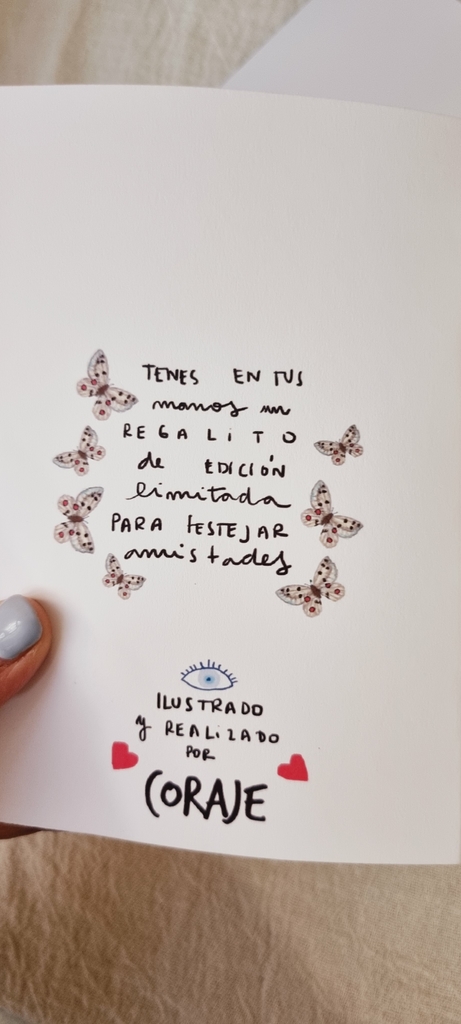 TENES EN TUS
manos un
REGALITO
de EDICIÓN
limitada
PARA FESTEJAR
amistades
ILUSTRADO
y REALIZADO
POR
CORAJE